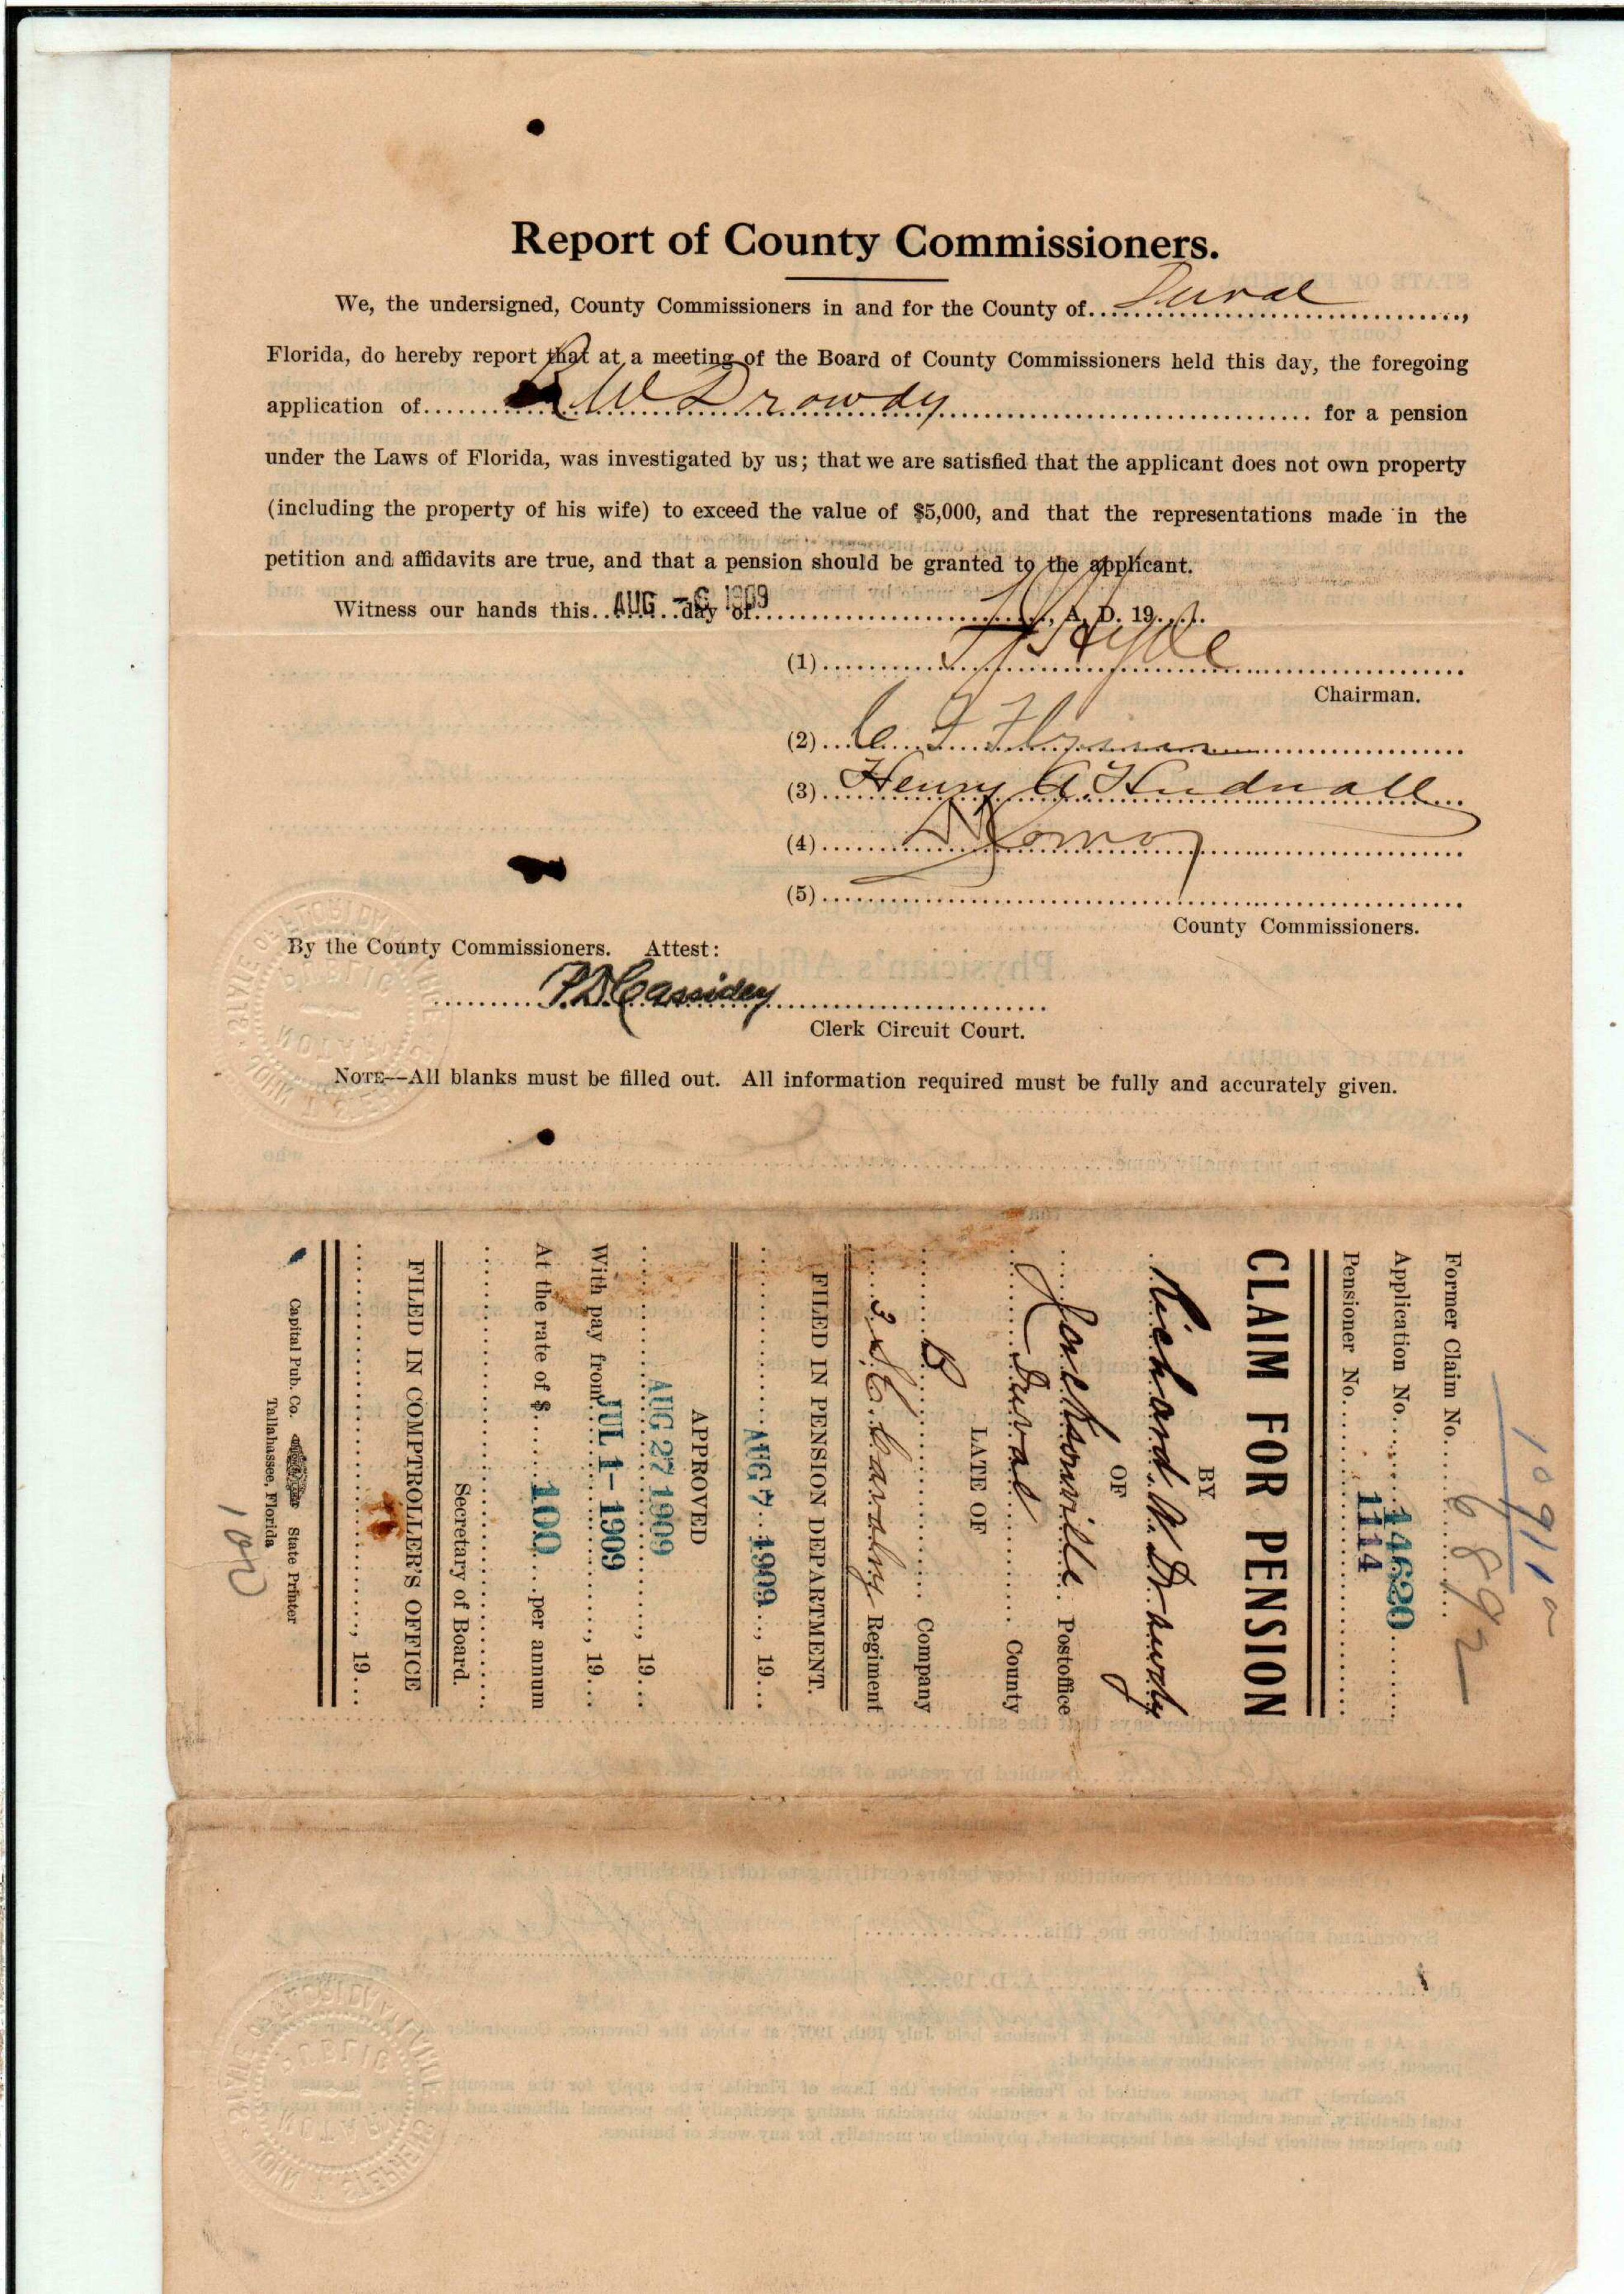 Report of County Commissioners.
We, the undersigned, County Commissioners in and for the County of Duval,
Florida, do hereby report that at a meeting of the Board of County Commissioners held this day, the foregoing
application of R W Drowdy for a pension
under the Laws of Florida, was investigated by us; that we are satisfied that the applicant does not own property
(including the property of his wife) to exceed the value of $5,000, and that the representations made in the
petition and affidavits are true, and that a pension should be granted to the applicant.
Witness our hands this AUG - 6 1909 day of , A. D. 19
(1) Hyde
Chairman.
(2) C. F.
(3) Henry A. Hudnall
(4)
(5)
County Commissioners.
By the County Commissioners. Attest:
P.D. Cassidey
Clerk Circuit Court.
NOTE--All blanks must be filled out. All information required must be fully and accurately given.
Former Claim No. 6892
Application No. 14620
Pensioner No. 1114
CLAIM FOR PENSION
BY
Richard W. Drawdy
OF
Jacksonville Postoffice
Duval County
LATE OF
B Company
3 S.C. Cavalry Regiment
FILED IN PENSION DEPARTMENT.
AUG 7 1909, 19
APPROVED
AUG 27 1909, 19
With pay from JUL 1 - 1909, 19
At the rate of $ 100 per annum
Secretary of Board.
FILED IN COMPTROLLER'S OFFICE
, 19
Capital Pub. Co. State Printer
Tallahassee, Florida